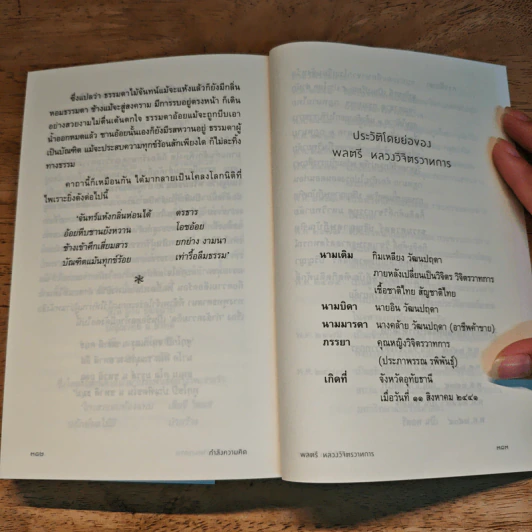 ซึ่งแปลว่า ธรรมดาไม้จันทน์แม้จะแห้งแล้วก็ยังมีกลิ่น
หอมธรรมดา ช้างแม้จะสู่สงคราม มีการรบอยู่ตรงหน้า ก็เดิน
อย่างสวยงามไม่ตื่นเต้นตกใจ ธรรมดาอ้อยแม้จะถูกบีบเอา
น้ำออกหมดแล้ว ชานอ้อยนั้นเองก็ยังมีรสหวานอยู่ ธรรมดาผู้
เป็นบัณฑิต แม้จะประสบความทุกข์ร้อนสักเพียงใด ก็ไม่ละทิ้ง
ทางธรรม
คาถานี้ก็เหมือนกัน ได้มากลายเป็นโคลงโลกนิติที่
ไพเราะยิ่งดังต่อไปนี้
'จันทร์แห้งกลิ่นห่อนได้ ดรธาร
อ้อยหีบชานยังหวาน โอชอ้อย
ช้างเข้าศึกเสี่ยมสาร ยกย่าง งามนา
บัณฑิตแม้นทุกข์ร้อย เท่ารื้อลืมธรรม'
*
๓๑๒ กำลังความคิด
ประวัติโดยย่อของ
พลตรี หลวงวิจิตรวาทการ
นามเดิม กิมเหลียง วัฒนปฤดา
ภายหลังเปลี่ยนเป็นวิจิตร วิจิตรวาทการ
เชื้อชาติไทย สัญชาติไทย
นามบิดา นายอิน วัฒนปฤดา
นามมารดา นางคล้าย วัฒนปฤดา (อาชีพค้าขาย)
ภรรยา คุณหญิงวิจิตรวาทการ
(ประภาพรรณ รพิพันธุ์)
เกิดที่ จังหวัดอุทัยธานี
เมื่อวันที่ ๑๑ สิงหาคม ๒๔๔๑
พลตรี หลวงวิจิตรวาทการ ๓๑๓